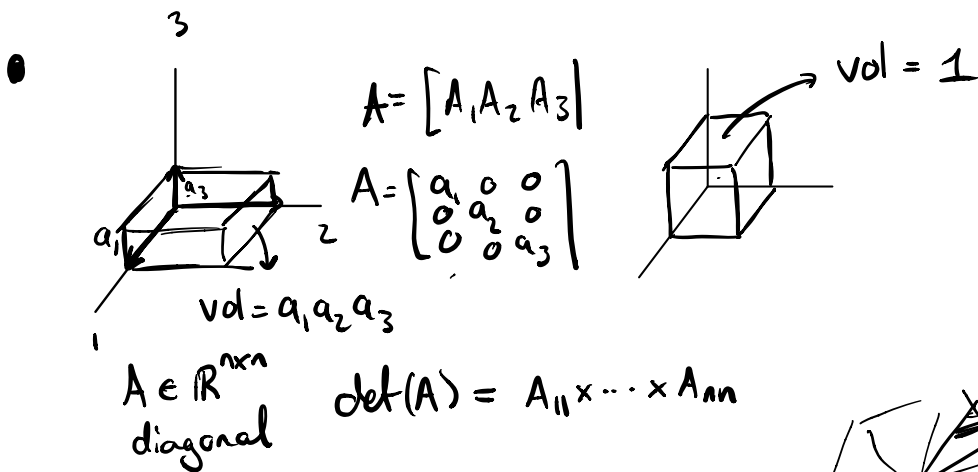 3
A = [A₁ A₂ A₃]
vol = 1
a₃
A = [a₁ 0 0
0 a₂ 0
0 0 a₃]
a₁
2
vol = a₁a₂a₃
1
A ∈ ℝⁿˣⁿ
diagonal
det(A) = A₁₁ × ⋯ × Aₙₙ